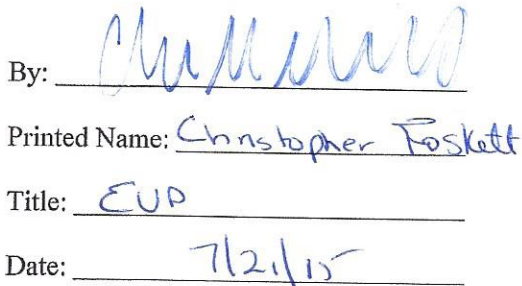 By:
Printed Name: Christopher Foskett
Title: EVP
Date: 7/21/15